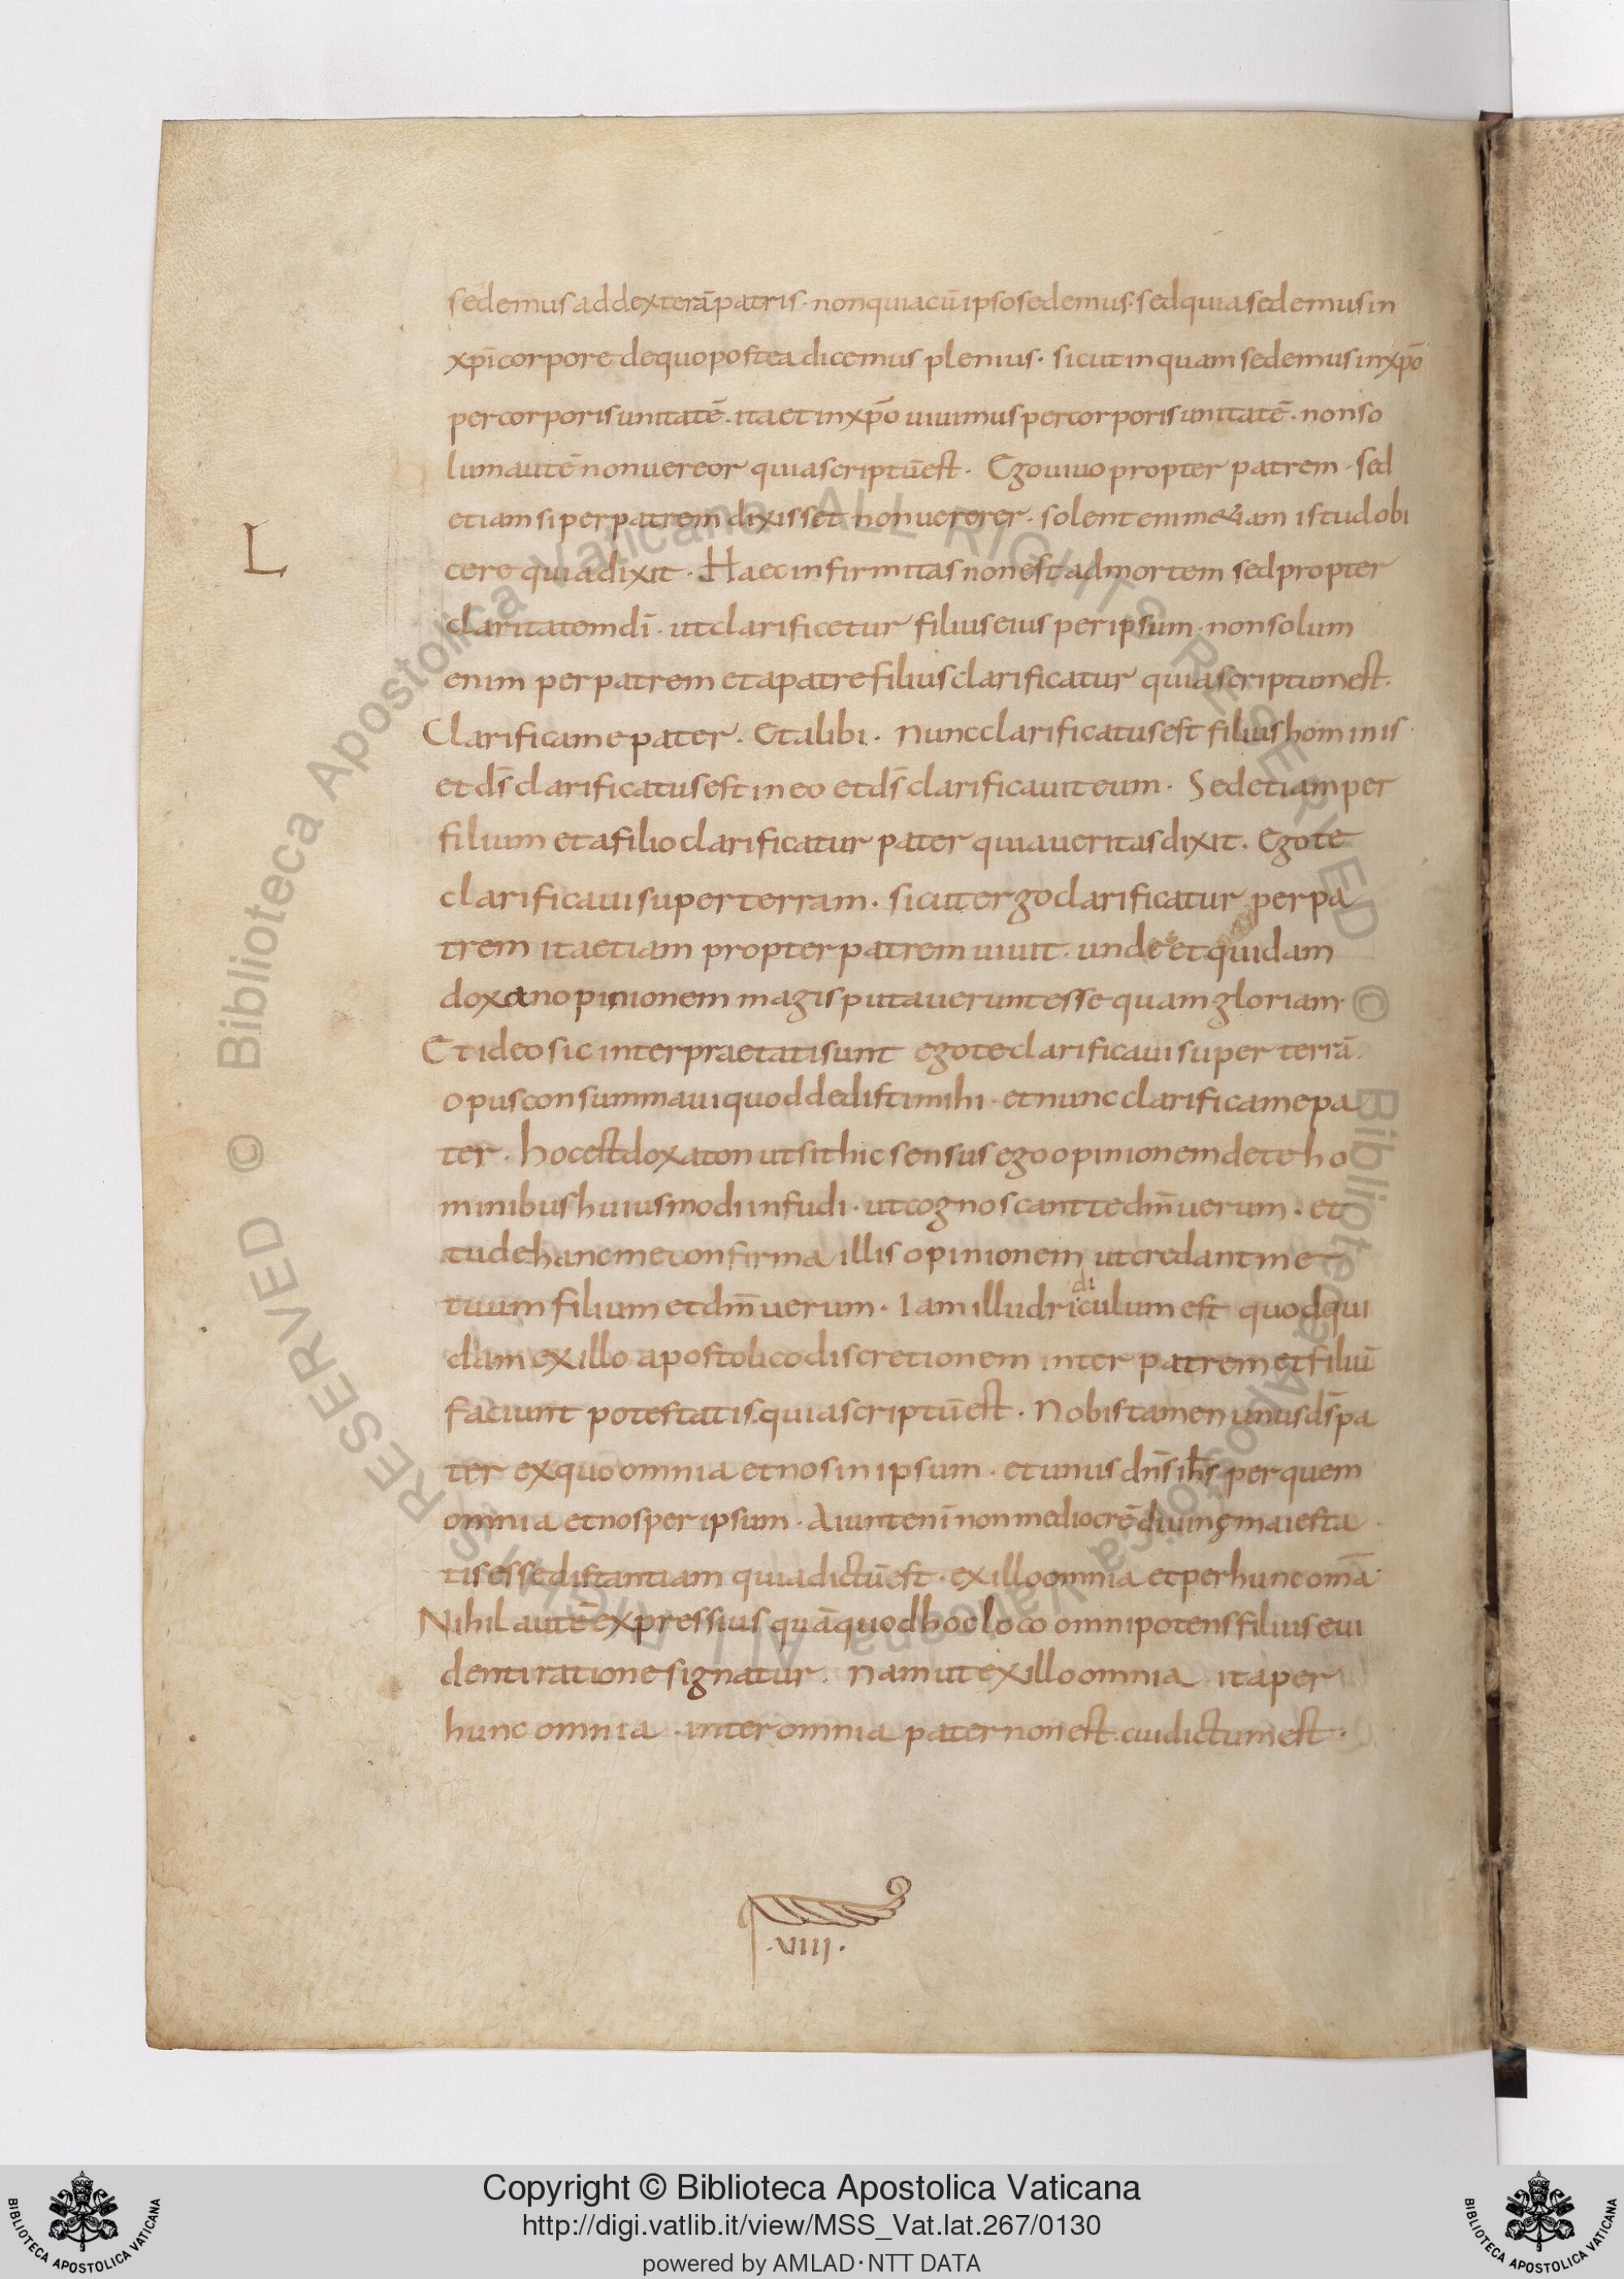 sedemus ad dexterā patris · non quia cū ipso sedemus · sed quia sedemus in
xp̄i corpore de quo postea dicemus plenius · sicut inquam sedemus in xp̄o
per corporis unitatē · ita et in xp̄o uiuimus per corporis unitatē · non so
lum autē non uereor quia scriptū est · Ego uiuo propter patrem · sed
etiam si per patrem dixisset non uererer · solent enim etiam istud obi
L
cere quia dixit · Haec infirmitas non est ad mortem sed propter
claritatem dī · ut clarificetur filius eius per ipsum · non solum
enim per patrem et a patre filius clarificatur quia scriptum est ·
Clarifica me pater · Et alibi · Nunc clarificatus est filius hominis
et ds̄ clarificatus est in eo et ds̄ clarificauit eum · Sed etiam per
filium et a filio clarificatur pater quia ueritas dixit · Ego te
clarificaui super terram · sicut ergo clarificatur per pa
trem ita etiam propter patrem uiuit · unde et quidam
doxan opinionem magis putauerunt esse quam gloriam ·
Et ideo sic interpraetati sunt ego te clarificaui super terrā ·
opus consummaui quod dedisti mihi · et nunc clarifica me pa
ter · hoc est doxaton ut sit hic sensus ego opinionem de te ho
minibus huiusmodi infudi · ut cognoscant te dm̄ uerum · et
tu de hanc me confirma illis opinionem ut credant me
di
tuum filium et dm̄ uerum · Iam illud riculum est quod qui
dam ex illo apostolico discretionem inter patrem et filiū
faciunt potestatis · quia scriptū est · Nobis tamen unus ds̄ pa
ter ex quo omnia et nos in ipsum · et unus dn̄s ih̄s per quem
omnia et nos per ipsum · Aiunt enī non mediocrē diuinę maiesta
tis esse distantiam quia dictū est · ex illo omnia et per hunc om̄a ·
Nihil autē expressius quā quod hoc loco omnipotens filius eui
denti ratione signatur · Nam ut ex illo omnia ita per
hunc omnia · inter omnia pater non est · cui dictum est ·
· VIIII ·
Copyright © Biblioteca Apostolica Vaticana
http://digi.vatlib.it/view/MSS_Vat.lat.267/0130
powered by AMLAD · NTT DATA
BIBLIOTECA APOSTOLICA VATICANA
BIBLIOTECA APOSTOLICA VATICANA
© Biblioteca Apostolica Vaticana ALL RIGHTS RESERVED
© Biblioteca Apostolica Vaticana ALL RIGHTS RESERVED